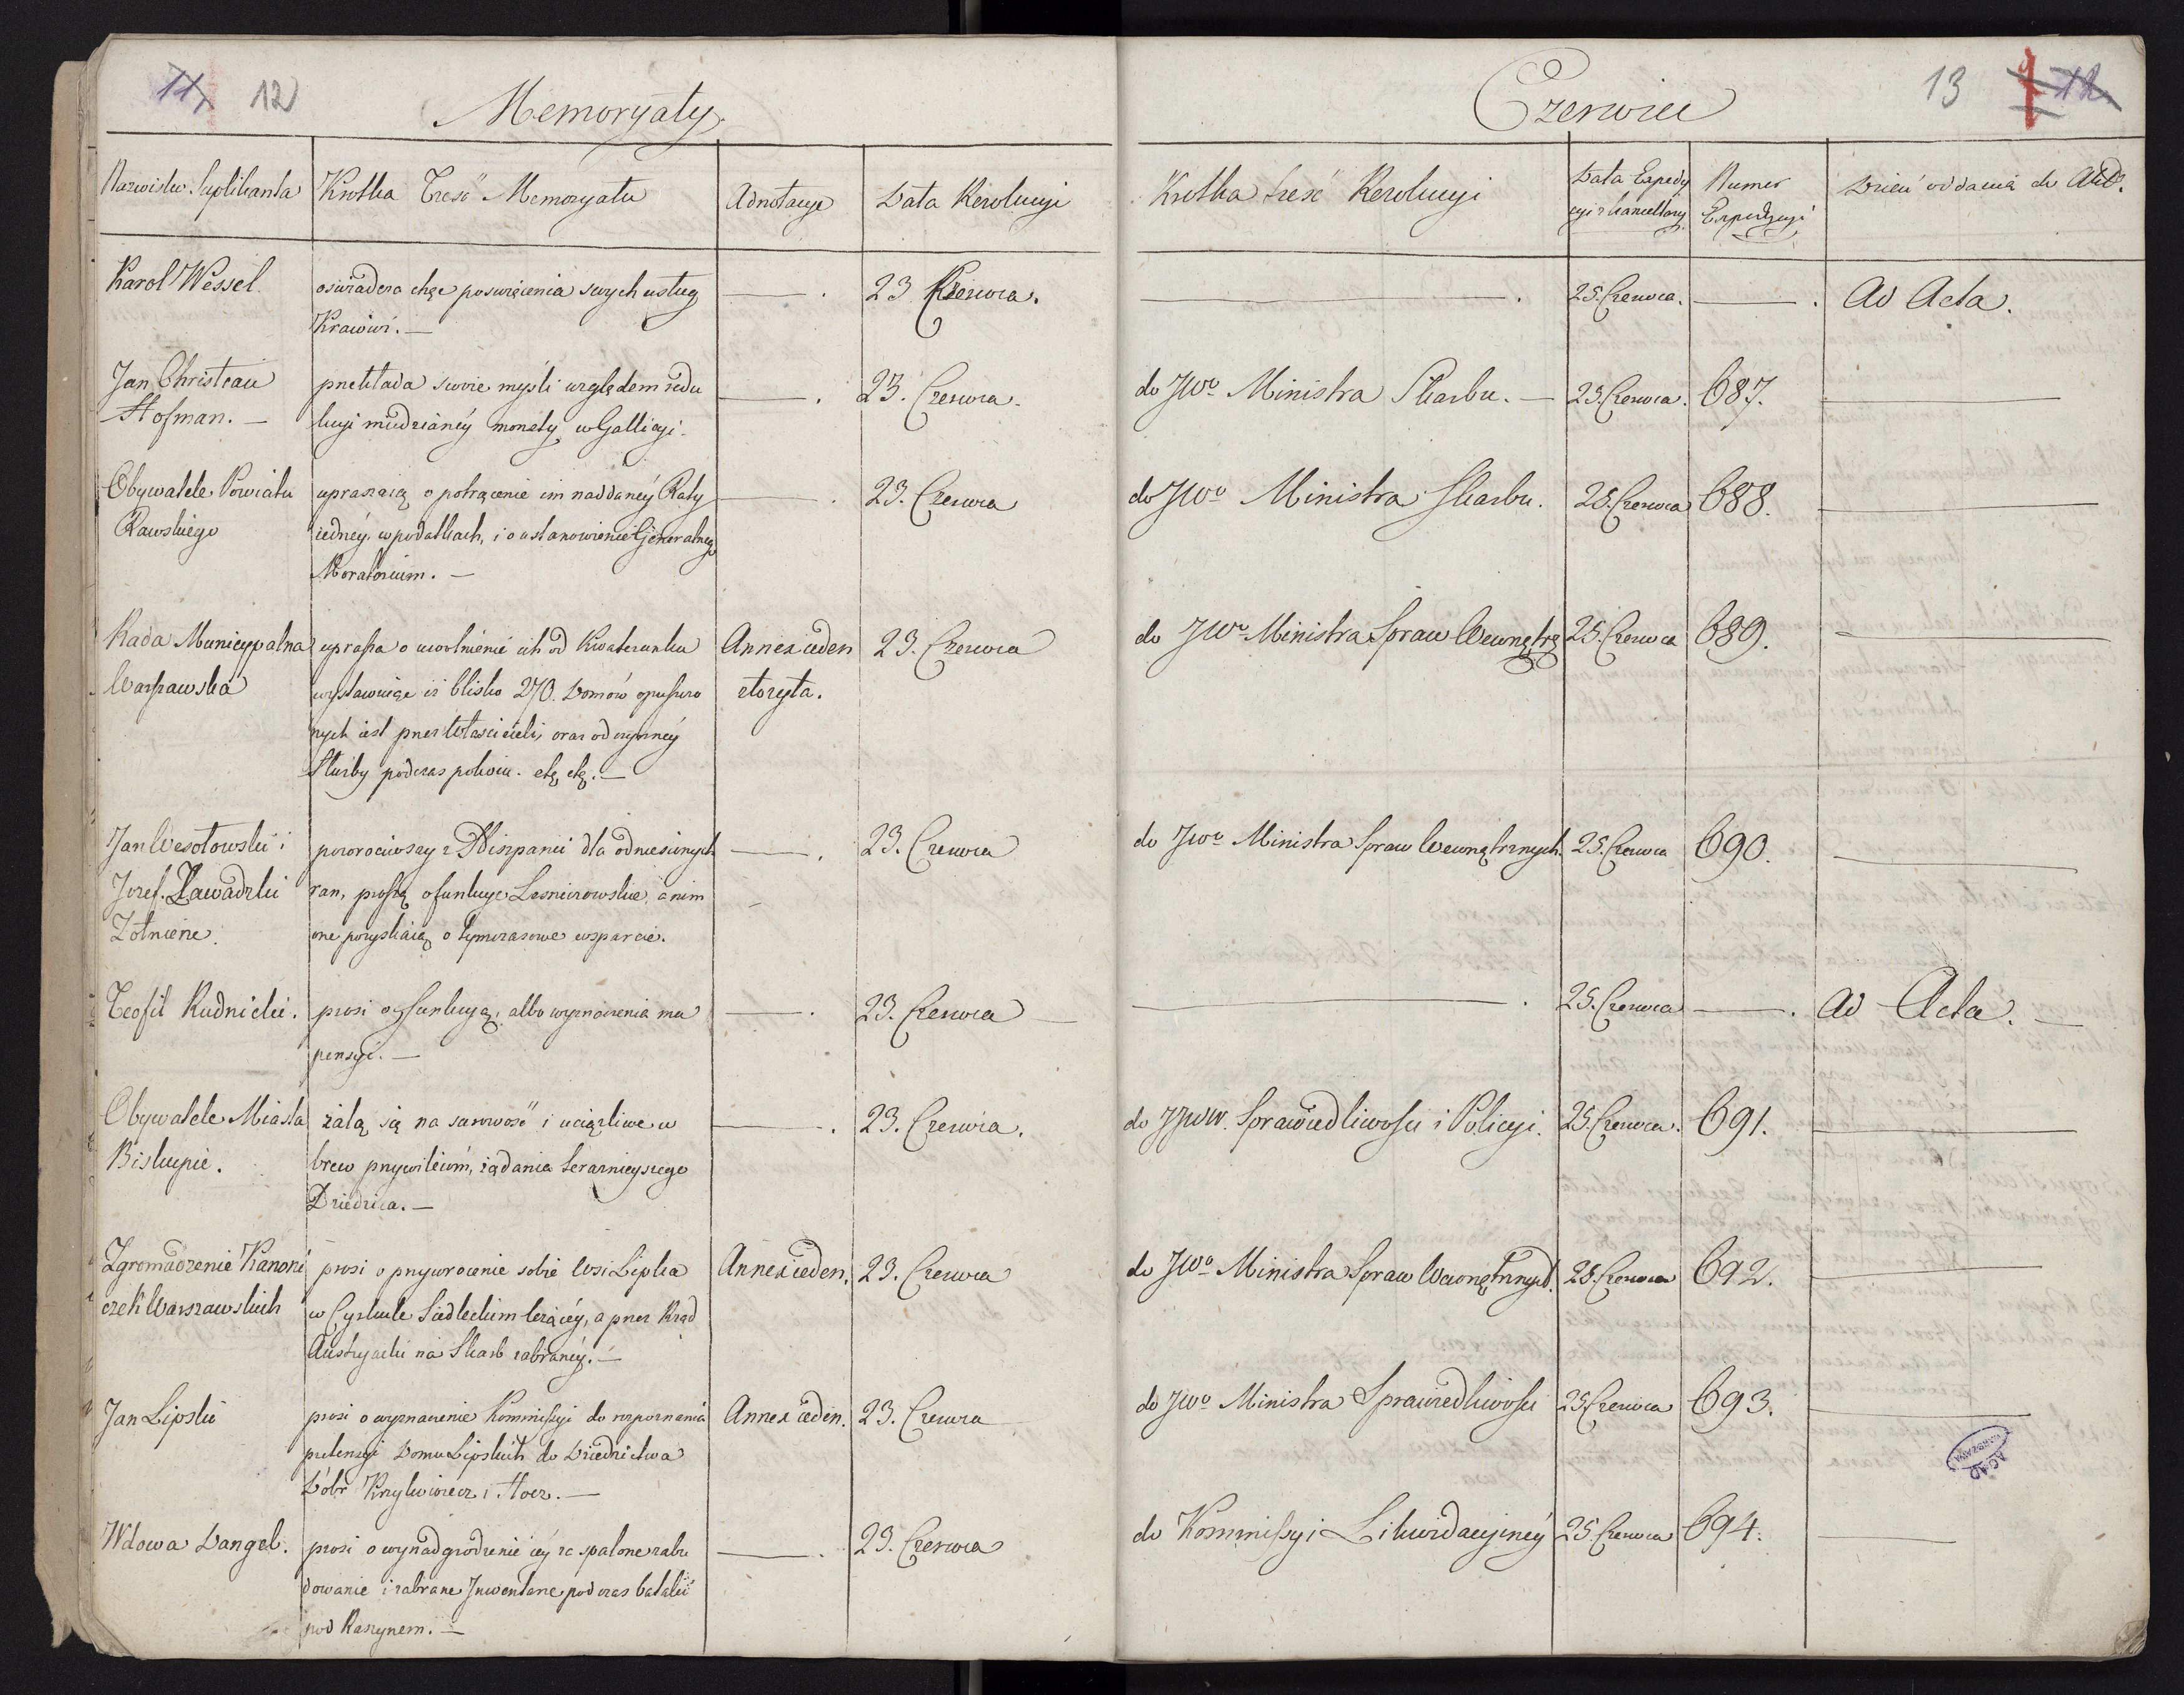 11, 12
Memoryały.
Nazwisko Suplikanta | Krotka Tresć Memoryału | Adnotacye | Data Rezolucyi
Karol Wessel. | oswiadcza chęć poswięcenia swych usług | —. | 23 Czerwca.
Kraiowi. —
Jan Christian | przekłada swoie myśli względem redu | —. | 23. Czerwca.
Hofman. — | kcyi miedzianéy monety w Gallicyi.
Obywatele Powiatu | upraszaią o potrącenie im naddanéy Raty | —. | 23. Czerwca
Rawskiego | iednéy w podatkach, i o ustanowienie Generalnego
Moratorium. —
Rada Municypalna | uprasza o uwolnienie ich od Kwaterunku | Annex ieden | 23. Czerwca
Warszawska | wystawuiąc iż blisko 270. Domów opuszczo | złożyła.
nych iest przez Właścicieli, oraz od czynnéy
Służby podczas pokoiu. etc, etc. —
Jan Wesołowski i | powrociwszy z Hiszpanii dla odniesionych | —. | 23. Czerwca
Jozef Zawadzki | ran, proszą o funkcye Lesniczowskie, a nim
Żołnierze. | one pozyskaią o tymczasowe wsparcie.
Teofil Rudnicki. | prosi o funkcyą, albo wyznaczenia mu | —. | 23. Czerwca
pensyi. —
Obywatele Miasta | żalą się na surowość i uciążliwe w | —. | 23. Czerwca.
Biskupie. | brew przywileiom, żądania teraznieyszego
Dziedzica. —
Zgromadzenie Kanoni | prosi o przywrocenie sobie Wsi Lipka | Annex ieden. | 23. Czerwca
czek Warszawskich | w Cyrkule Siedleckim leżącéy, a przez Rząd
Austryacki na Skarb zabranéy. —
Jan Lipski | prosi o wyznaczenie Kommissyi do rozpoznania | Annex ieden. | 23. Czerwca
pretensyi Domu Lipskich do Dziedzictwa
Dóbr Krzykwiecz i Hoez. —
Wdowa Dangel. | prosi o wynadgrodzenie iéy za spalone zabu | —. | 23. Czerwca
dowanie i zabrane Inwentarze podczas batalii
pod Raszynem. —
Czerwiec
13 12.
Krotka treść Rezolucyi | Data Expedy | Numer | Dzień oddania do Akt.
cyi z Kancellaryi | Expedycyi
—. | 25. Czerwca. | —. | Ad Acta.
do JWo Ministra Skarbu. — | 25. Czerwca. | 687. | —
do JWo Ministra Skarbu. | 25. Czerwca | 688. | —
do JWo Ministra Spraw Wewnętrz | 25. Czerwca | 689. | —
do JWo Ministra Spraw Wewnętrznych. | 25. Czerwca | 690. | —
—. | 25. Czerwca | —. | Ad Acta. —
do JJWW. Sprawiedliwości i Policyi. | 25. Czerwca. | 691. | —
do JWo Ministra Spraw Wewnętrznych. | 25. Czerwca | 692. | —
do JWo Ministra Sprawiedliwości | 25 Czerwca | 693. | —
AGAD
WARSZAWA
do Kommissyi Likwidacyinéy | 25 Czerwca | 694. | —